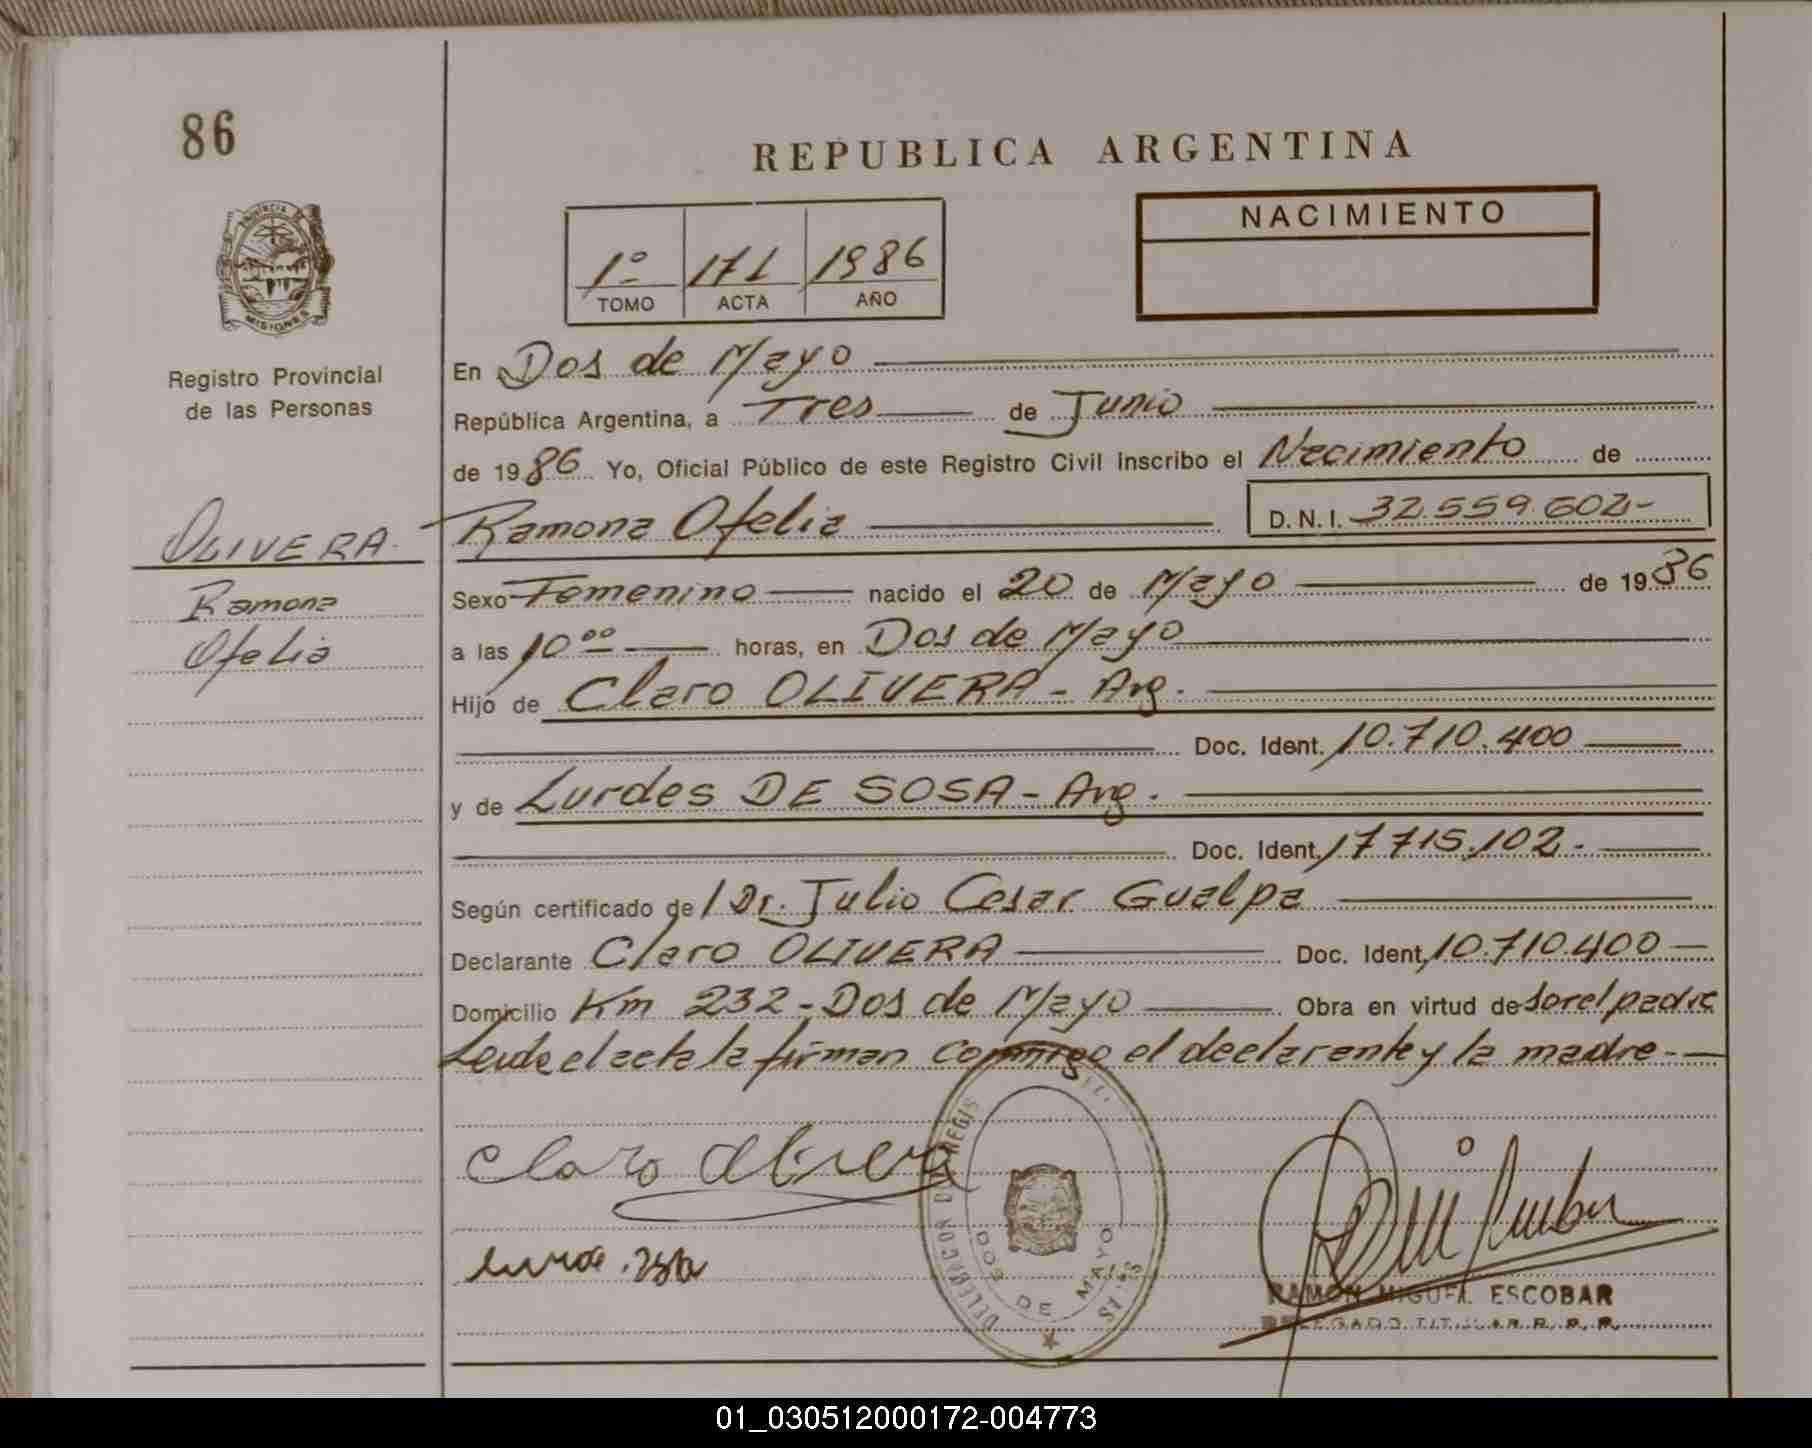 86
REPUBLICA ARGENTINA
NACIMIENTO
1º 171 1986
TOMO ACTA AÑO
PROVINCIA DE
MISIONES
Registro Provincial
de las Personas
En Dos de Mayo
República Argentina, a Tres de Junio
de 1986 Yo, Oficial Público de este Registro Civil inscribo el Nacimiento de
OLIVERA.
Ramona Ofelia D.N.I. 32.559.602-
Ramona
Ofelia
Sexo Femenino nacido el 20 de Mayo de 1986
a las 10 ºº horas, en Dos de Mayo
Hijo de Claro OLIVERA - Arg.
Doc. Ident. 10.710.400
y de Lurdes DE SOSA - Arg.
Doc. Ident. 17.715.102.-
Según certificado de / Dr. Julio Cesar Gualpa
Declarante Claro OLIVERA Doc. Ident. 10.710.400
Domicilio Km 232 - Dos de Mayo Obra en virtud de ser el padre
Leída el acta la firman conmigo el declarante y la madre.-
Claro Olivera
DELEGACION DEL REGIS
DOS DE MAYO
RAMON MIGUEL ESCOBAR
DELEGADO TITULAR R. P. P.
01_030512000172-004773